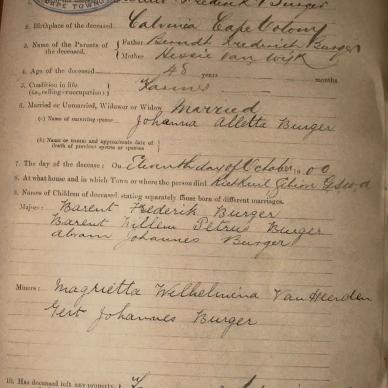 CAPE TOWN
Frederik Burger
2. Birthplace of the deceased. Calvinia Cape Colony
3. Names of the Parents of the deceased. Father Frederick Burger
Mother Hessie van Wijk
4. Age of the deceased 48 years months
5. Condition in life
(i.e., calling or occupation) Farmer
6. Married or Unmarried, Widower or Widow Married
(a) Name of surviving spouse Johanna Alletta Burger
(b) Name or names and approximate date of
death of previous spouse or spouses
7. The day of the decease: On Eleventh day of October 1900
8. At what house and in which Town or where the person died.
9. Names of Children of deceased, stating separately those born of different marriages.
Majors: Barent Frederik Burger
Barent Willem Petrus Burger
Abram Johannes Burger
Minors: Magrietta Wilhelmina Van Heerden
Gert Johannes Burger
10. Has deceased left any property,